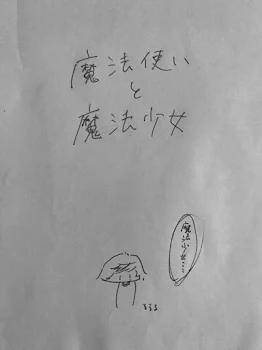 魔法使い
と
魔法少女
魔法少女…
ううう